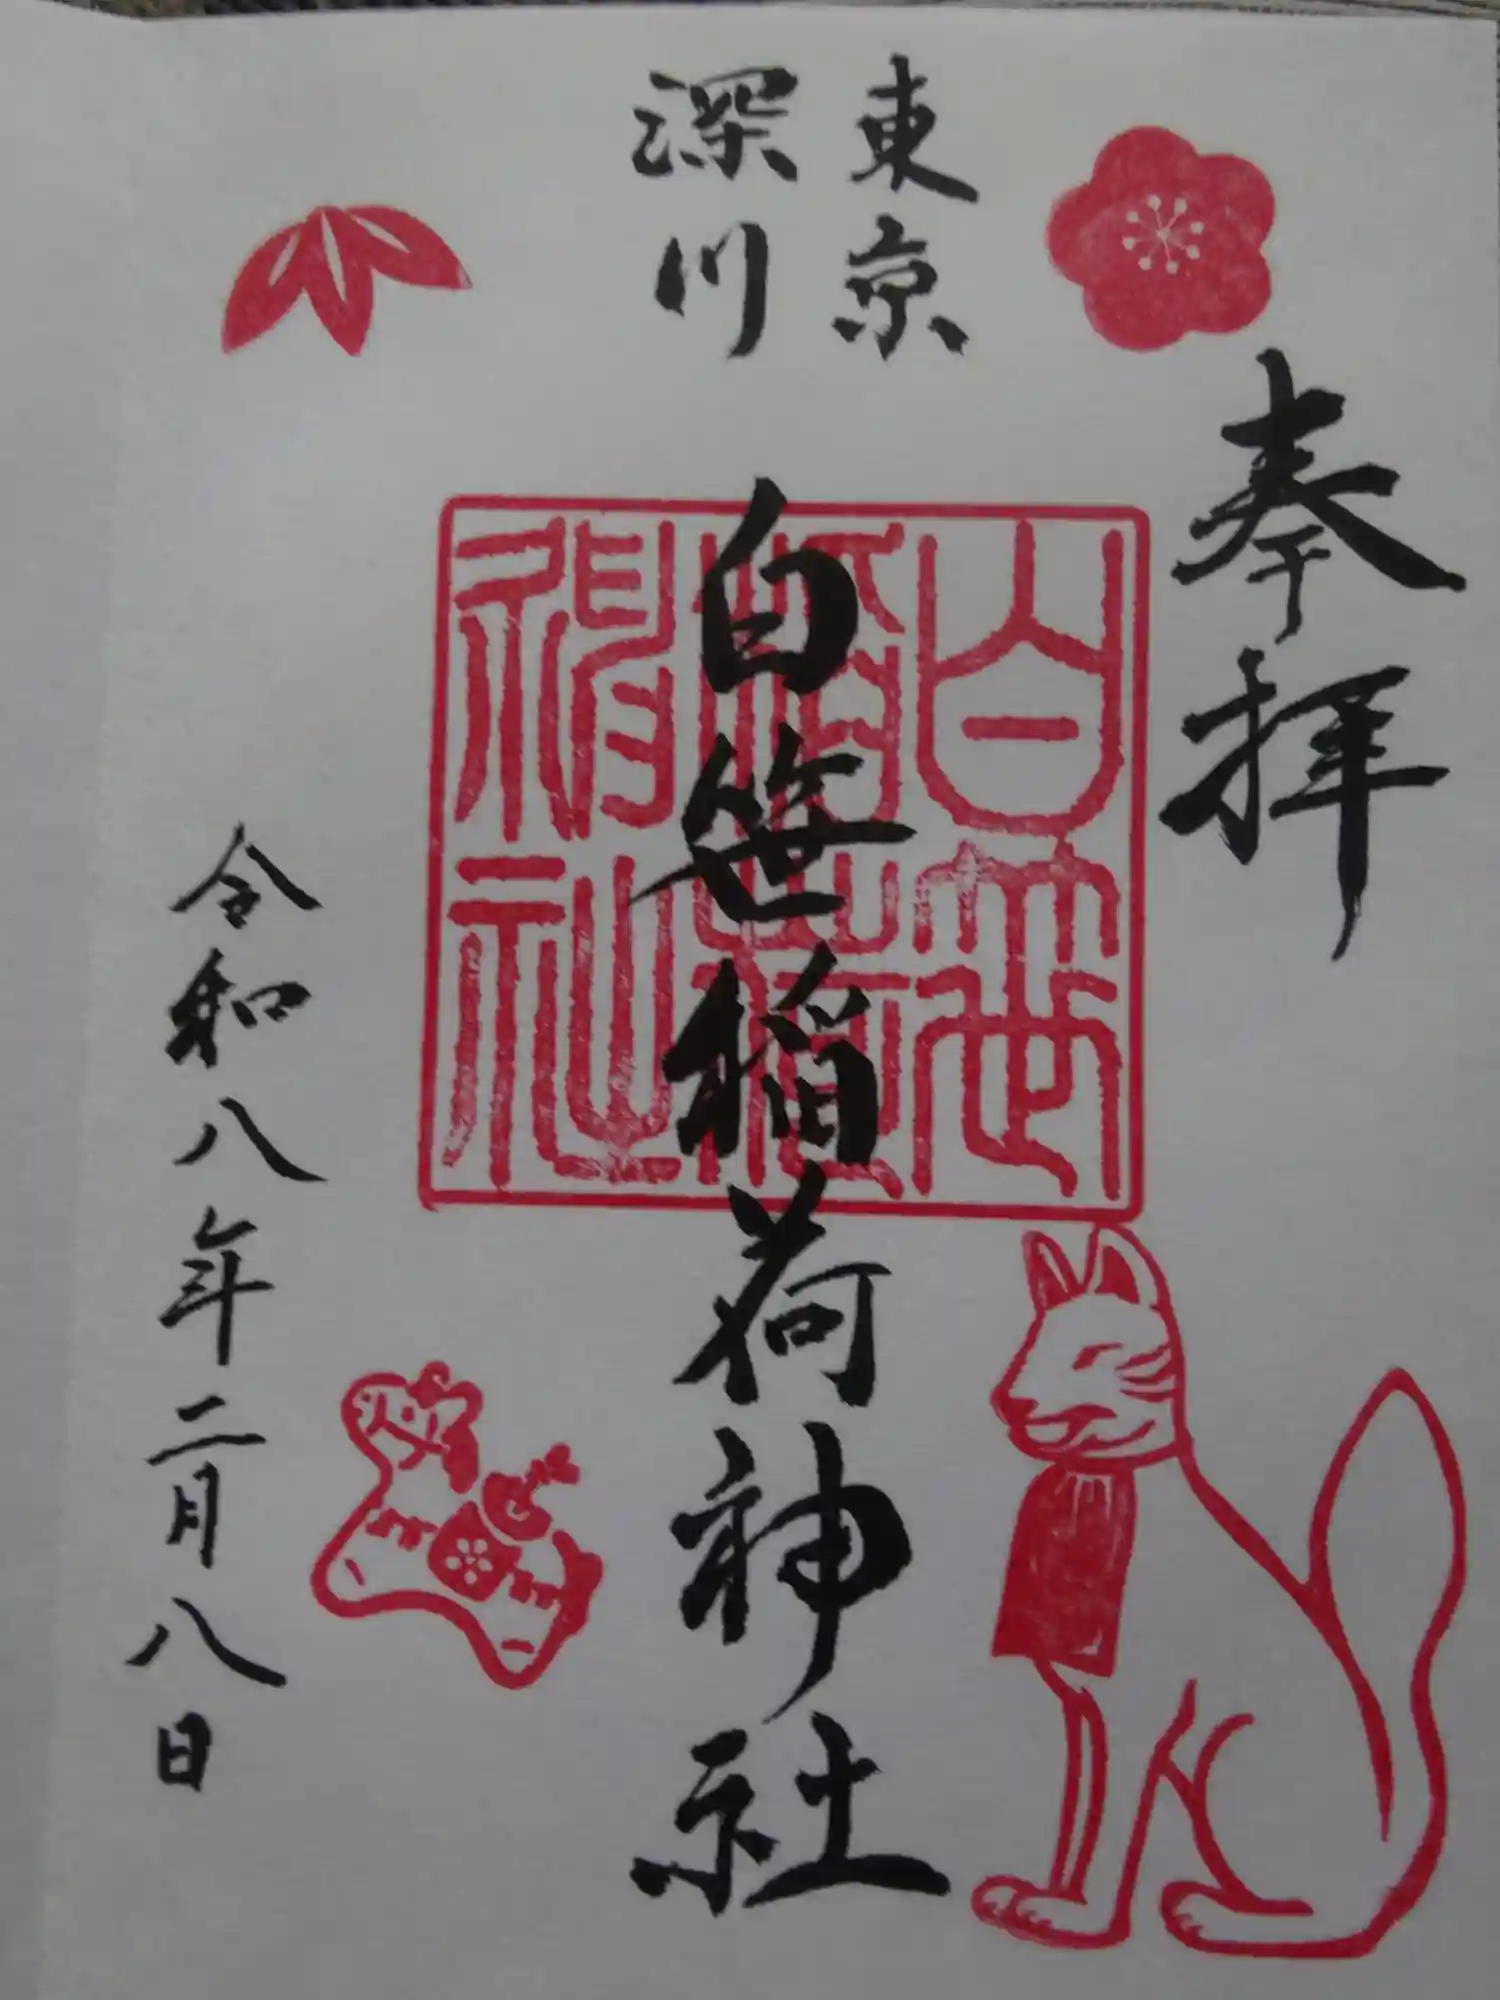 奉拝
東京
深川
白笹稲荷神社
白笹
稲荷
神社
令和八年二月八日